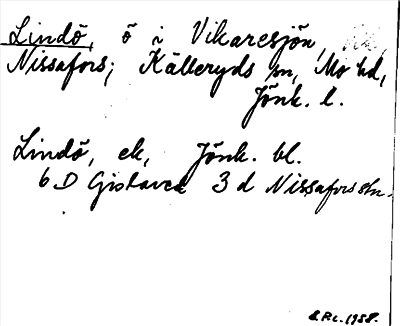 Lindö, ö i Vikaresjön,
Nissafors; Källeryds sn, Mo hd,
Jönk. l.
Lindö, ek, Jönk. bl.
6 D Gislaved 3 d Nissafors stn.
1958.